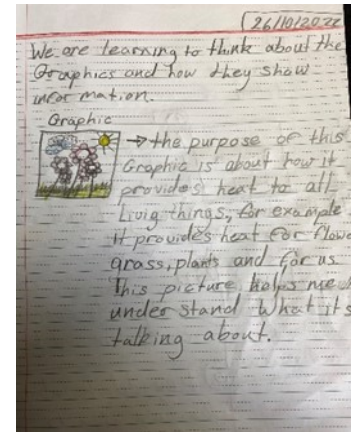 26/10/2022
We are learning to think about the
Graphics and how they show
infor mation.
Graphic
→ the purpose of this
Graphic is about how it
provides heat to all
Livig things, for example
it provides heat for flowe
grass, plants and for us
This picture helps me
under stand what its
talking about.